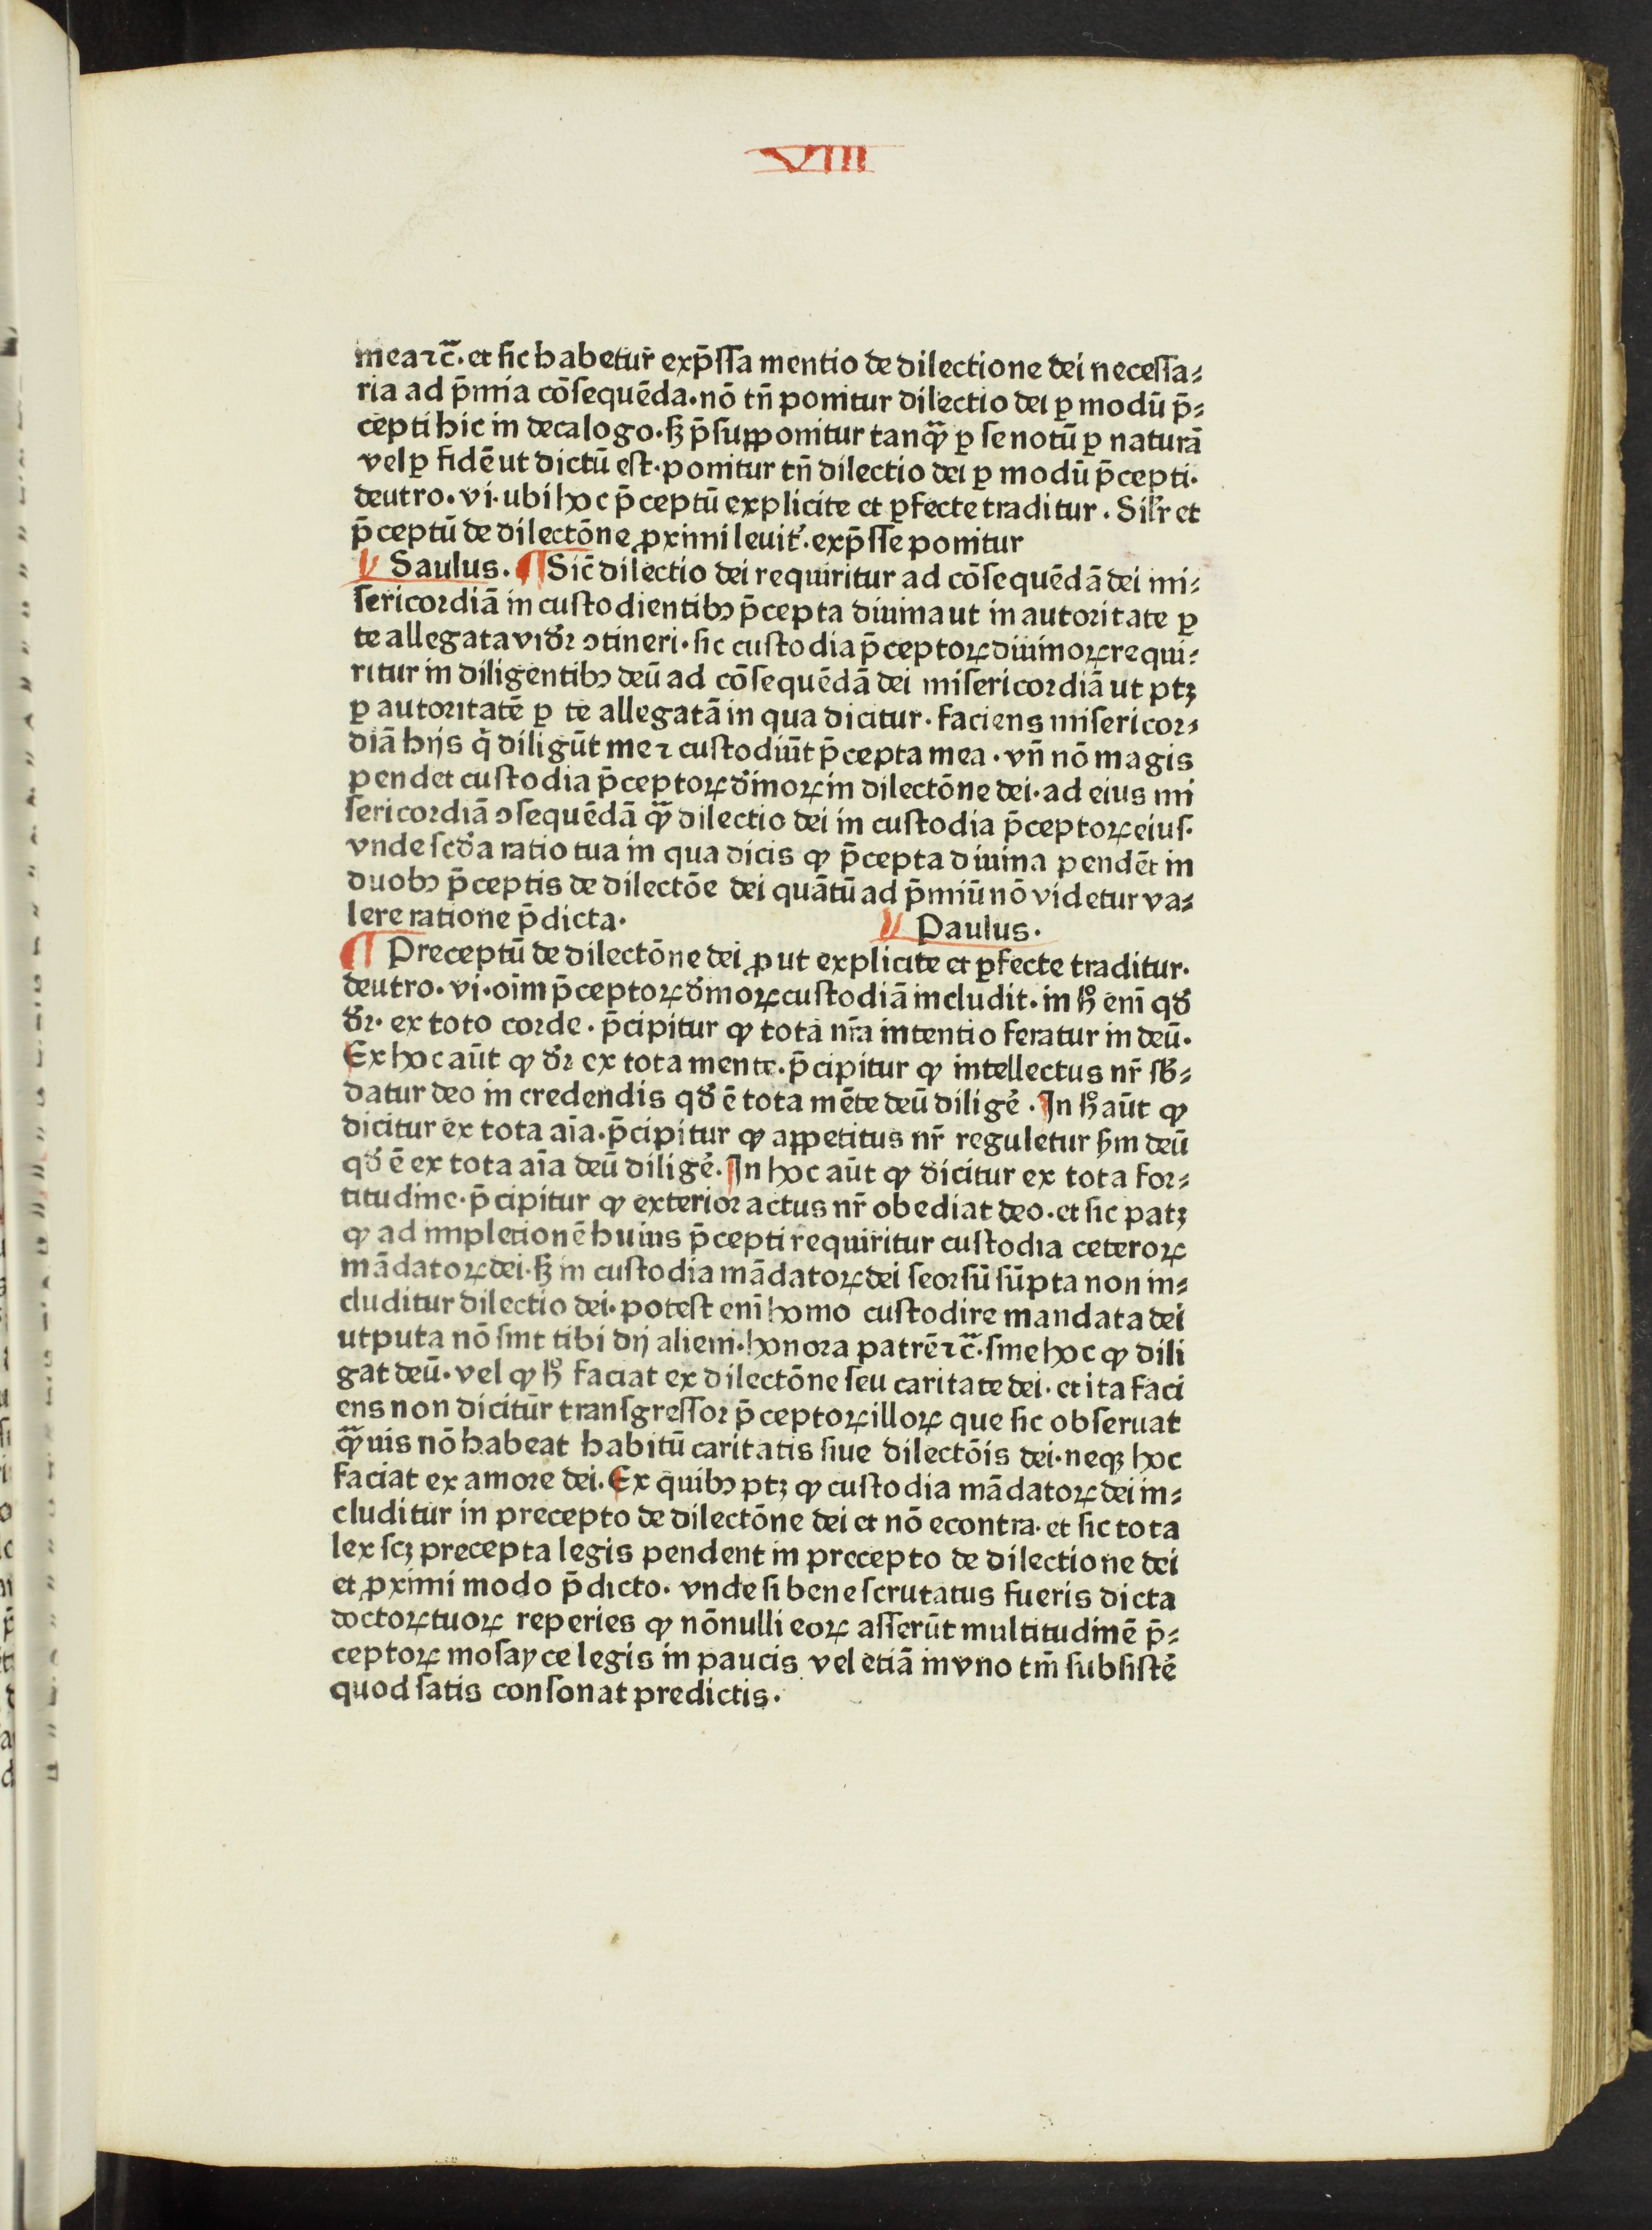 VIII
mea ⁊c̄. et sic habetur̃ exp̄ssa mentio de dilectione dei necessa⸗
ria ad p̄mia cōsequēda. nō tn̄ ponitur dilectio dei ꝑ modū p̄⸗
cepti hic in decalogo. sꝫ p̄supponitur tanqͣꝫ ꝑ se notū ꝑ naturā
vel ꝑ fidē ut dictū est. ponitur tn̄ dilectio dei ꝑ modū p̄cepti.
deutro. vi. ubi hoc p̄ceptū explicite et ꝑfecte traditur. Silr̄ et
p̄ceptū de dilectōne ꝓximi leuit̉. exp̄sse ponitur
Saulus. ¶ Sic̄ dilectio dei requiritur ad cōsequēdā dei mi⸗
sericordiā in custodientibꝰ p̄cepta diuina ut in autoritate ꝑ
te allegata vidr̄ ꝯtineri. sic custodia p̄ceptoꝝ diuinoꝝ requi⸗
ritur in diligentibꝰ deū ad cōsequēdā dei misericordiā ut ptꝫ
ꝑ autoritatē ꝑ te allegatā in qua dicitur. faciens misericor⸗
diā hijs q̇ diligūt me ⁊ custodiūt p̄cepta mea. vn̄ nō magis
pendet custodia p̄ceptoꝝ diⁿinoꝝ in dilectōne dei. ad eius mi
sericordiā ꝯsequēdā qͣꝫ dilectio dei in custodia p̄ceptoꝝ eius.
vnde scd̄a ratio tua in qua dicis ꝙ p̄cepta diuina pendēt in
duobꝰ p̄ceptis de dilectōe dei quātū ad p̄miū nō videtur va⸗
lere ratione p̄dicta. Paulus.
¶ Preceptū de dilectōne dei ꝓut explicite et ꝑfecte traditur.
deutro. vi. oīm p̄ceptoꝝ dīnoꝝ custodiā includit. in hͦ enī qd̄
dr̄. ex toto corde. p̄cipitur ꝙ tota nr̄a intentio feratur in deū.
Ex hoc aūt ꝙ dr̄ ex tota mente. p̄cipitur ꝙ intellectus nr̄ sb̄⸗
datur deo in credendis qd̄ ē tota mēte deū diligē. In hͦ aūt ꝙ
dicitur ex tota aīa. p̄cipitur ꝙ appetitus nr̄ reguletur ẜm deū
qd̄ ē ex tota aīa deū diligē. In hoc aūt ꝙ dicitur ex tota for⸗
titudine. p̄cipitur ꝙ exterior actus nr̄ obediat deo. et sic patꝫ
ꝙ ad impletionē huius p̄cepti requiritur custodia ceteroꝝ
mādatoꝝ dei. sꝫ in custodia mādatoꝝ dei seorsū sūpta non in⸗
cluditur dilectio dei. potest enī homo custodire mandata dei
utputa nō sint tibi dij alieni. honora patrē ⁊c̄. sine hoc ꝙ dili
gat deū. vel ꝙ hͦ faciat ex dilectōne seu caritate dei. et ita faci
ens non dicitur̄ transgressor p̄ceptoꝝ illoꝝ que sic obseruat
qͣꝫuis nō habeat habitū caritatis siue dilectōis dei. neqꝫ hoc
faciat ex amore dei. Ex quibꝰ ptꝫ ꝙ custodia mādatoꝝ dei in⸗
cluditur in precepto de dilectōne dei et nō econtra. et sic tota
lex scꝫ precepta legis pendent in precepto de dilectione dei
et ꝓximi modo p̄dicto. vnde si bene scrutatus fueris dicta
doctoꝝ tuoꝝ reperies ꝙ nōnulli eoꝝ asserūt multitudinē p̄⸗
ceptoꝝ mosayce legis in paucis vel etiā in vno tm̄ subsistē
quod satis consonat predictis.